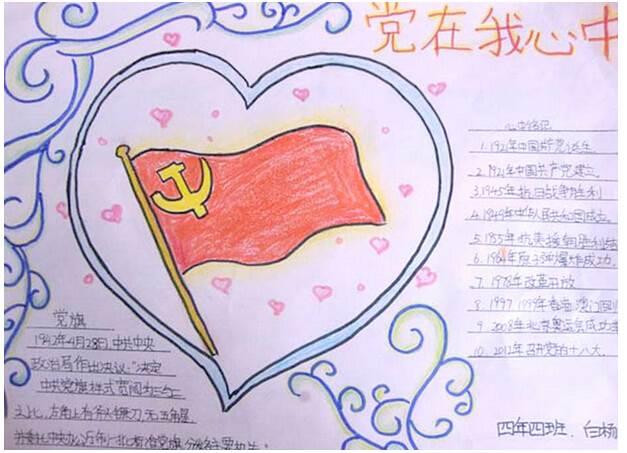 党在我心中
党旗
1942年4月28日,中共中央
政治局作出决议:"决定
中共党旗样式宽阔为三与二
之比,左角上有斧头镰刀,无五角星
并委托中央办公
心中铭记
1. 1921年中国
2. 1921年中国共产党建立
3. 1945年抗日战争胜利
4. 1949年中华人民共和国成立
5. 抗美援朝胜利
6. 1964年原子弹爆炸成功
7. 1978年改革开放
8. 1997 1999年香港澳门回
9. 2008年北京奥运会成功
10. 2012年召开党的十八大
四年四班. 白杨